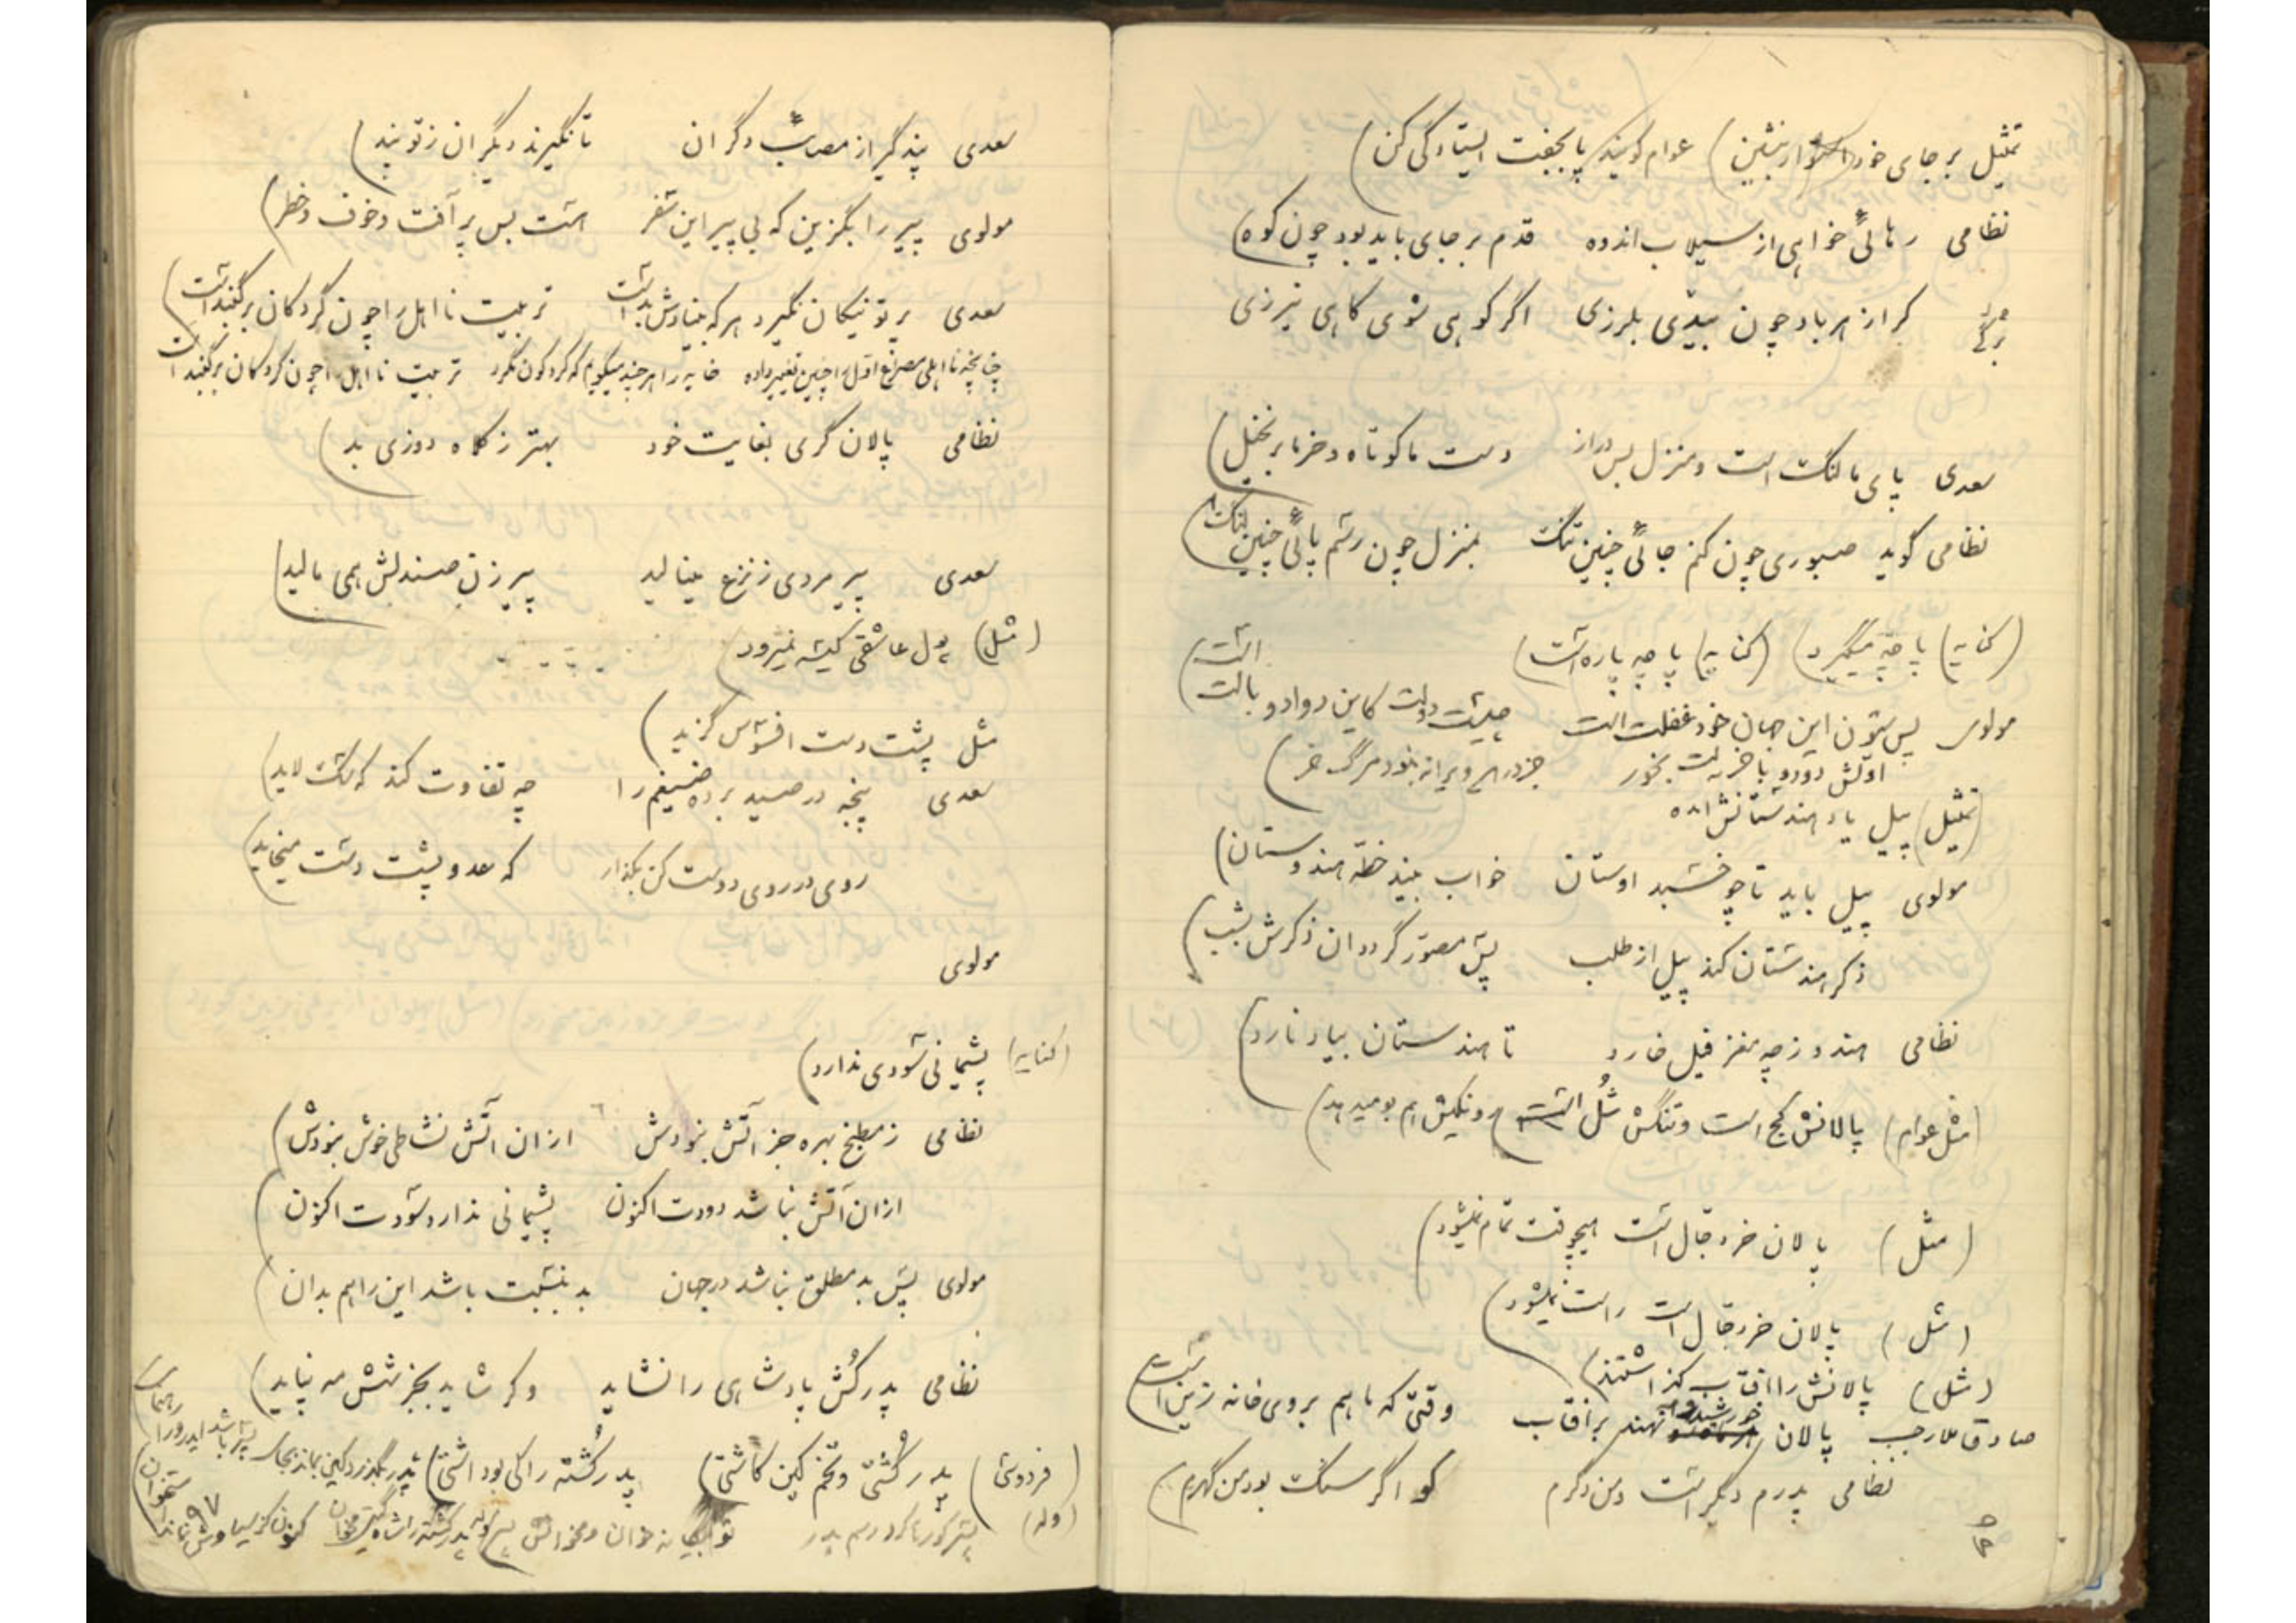 تمثیل بر جای خود استوار بنشین) عوام گویند پا بجفت ایستادگی کن)
نظامی رهائی خواهی از سیلاب اندوه قدم بر جای باید بود چون کوه)
گر از هر باد چون بیدی بلرزی اگر کوهی شوی کاهی نیرزی
سعدی پای ما لنگ است و منزل بس دراز دست ما کوتاه و خرما بر نخیل)
نظامی گوید صبوری چون کنم جائی چنین تنگ بمنزل چون رسم پائی چنین لنگ)
(کنایه) پاچه میگیرد) (کنایه) پاچه پاره است)
مولوی پس ستون این جهان خود غفلت است چیست دولت کاین دوادو بالت است)
اولش دو دو بآخر لت بخور جز در این ویرانه نبود مرگ خر)
(تمثیل) پیل یاد هندستانش آمده
مولوی پیل باید تا چو خسبد اوستان خواب بیند خطه هندوستان)
ذکر هندستان کند پیل از طلب پس مصور گردد آن ذکرش بشب)
نظامی هندو ز چه مغز فیل خارد تا هندستان بیاد نارد)
(مثل عوام) پالانش کج است و تنگش شل است) و نکیش هم بو میدهد)
(مثل) پالان خر دجال است هیچوقت تمام نمیشود)
(مثل) پالان خر دجال است راست نمیشود)
(مثل) پالانش را آفتاب گذاشتند)
صادق ملا رجب پالان خورشید و مه نهند بر آفتاب وقتی که ماهم بروی خانه زین است)
نظامی پدرم دیگر است و من دگرم کو اگر سنگ بود من گهرم)
۹۶
سعدی پند گیر از مصائب دگران تا نگیرند دیگران ز تو پند)
مولوی پیر را بگزین که بی پیر این سفر هست بس پر آفت و خوف و خطر)
سعدی پرتو نیکان نگیرد هر که بنیادش بد است تربیت نااهل را چون گردکان بر گنبد است)
چنانچه نااهلی مصرع اول را چنین تغییر داده خایه را هر چند میگویم که گرد کون نگرد تربیت نااهل را چون گردکان بر گنبد است
نظامی پالان گری بغایت خود بهتر ز کلاه دوزی بد)
سعدی پیر مردی ز نزع مینالید پیر زن صندلش همی مالید)
(مثل) پول عاشقی بکیسه نمیرود)
مثل پشت دست افسوس گزید)
سعدی پنجه در صید برده ضیغم را چه تفاوت کند که سگ لاید)
روی در روی دوست کن بگذار که عدو پشت دست میخاید)
مولوی
(کنایه) پشیمانی سودی ندارد)
نظامی ز مطبخ بهره جز آتش نبودش از آن آتش نشاطی خوش نبودش)
از آن آتش نباشد دودت اکنون پشیمانی ندارد سودت اکنون)
مولوی پس بد مطلق نباشد در جهان بد بنسبت باشد این را هم بدان)
نظامی پدر کش پادشاهی را نشاید وگر شاید بجز شش مه نپاید)
(فردوسی) پدر کشتی و تخم کین کاشتی) پدر کشته را کی بود آشتی) پدر بگذرد کین بماند بجای پسر باشد این درد را رهنمای
(وله) پسر کو رها کرد رسم پدر تو بیگانه خوان و مخوانش پسر) وله پدر کشته را شاه گیتی مخوان کنون کز سیاوش نماند استخوان)
۹۷